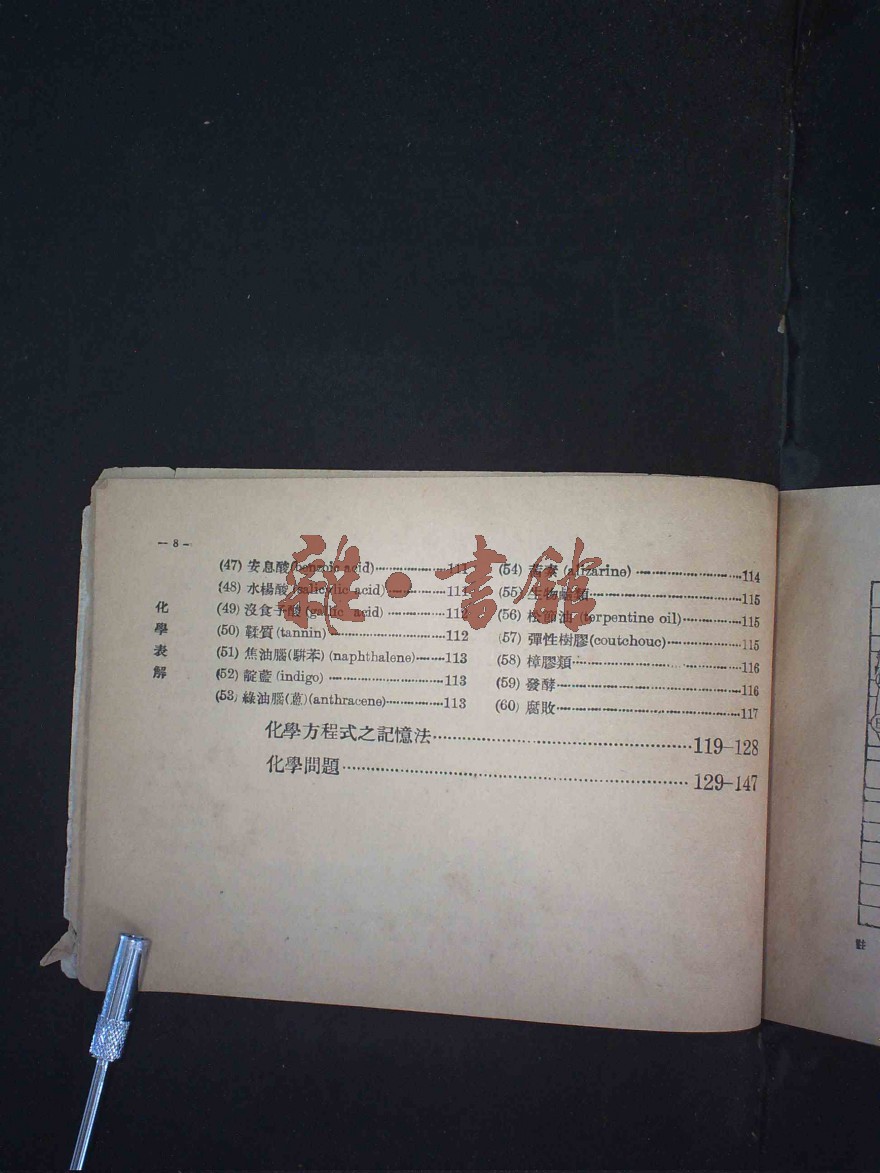 — 8 —
化學表解
(47) 安息酸(benzoic acid)………………111
(48) 水楊酸(salicylic acid)………………111
(49) 沒食子酸(gallic acid)………………112
(50) 鞣質(tannin)………………112
(51) 焦油腦(駢苯)(naphthalene)………113
(52) 靛藍(indigo)………………113
(53) 綠油腦(蒽)(anthracene)………………113
(54) (alizarine)………………114
(55) 生物鹼類………………115
(56) 松節油(terpentine oil)………………115
(57) 彈性樹膠(coutchouc)………………115
(58) 樟膠類………………116
(59) 發酵………………116
(60) 腐敗………………117
化學方程式之記憶法………………119–128
化學問題………………129–147
雜·書館
註